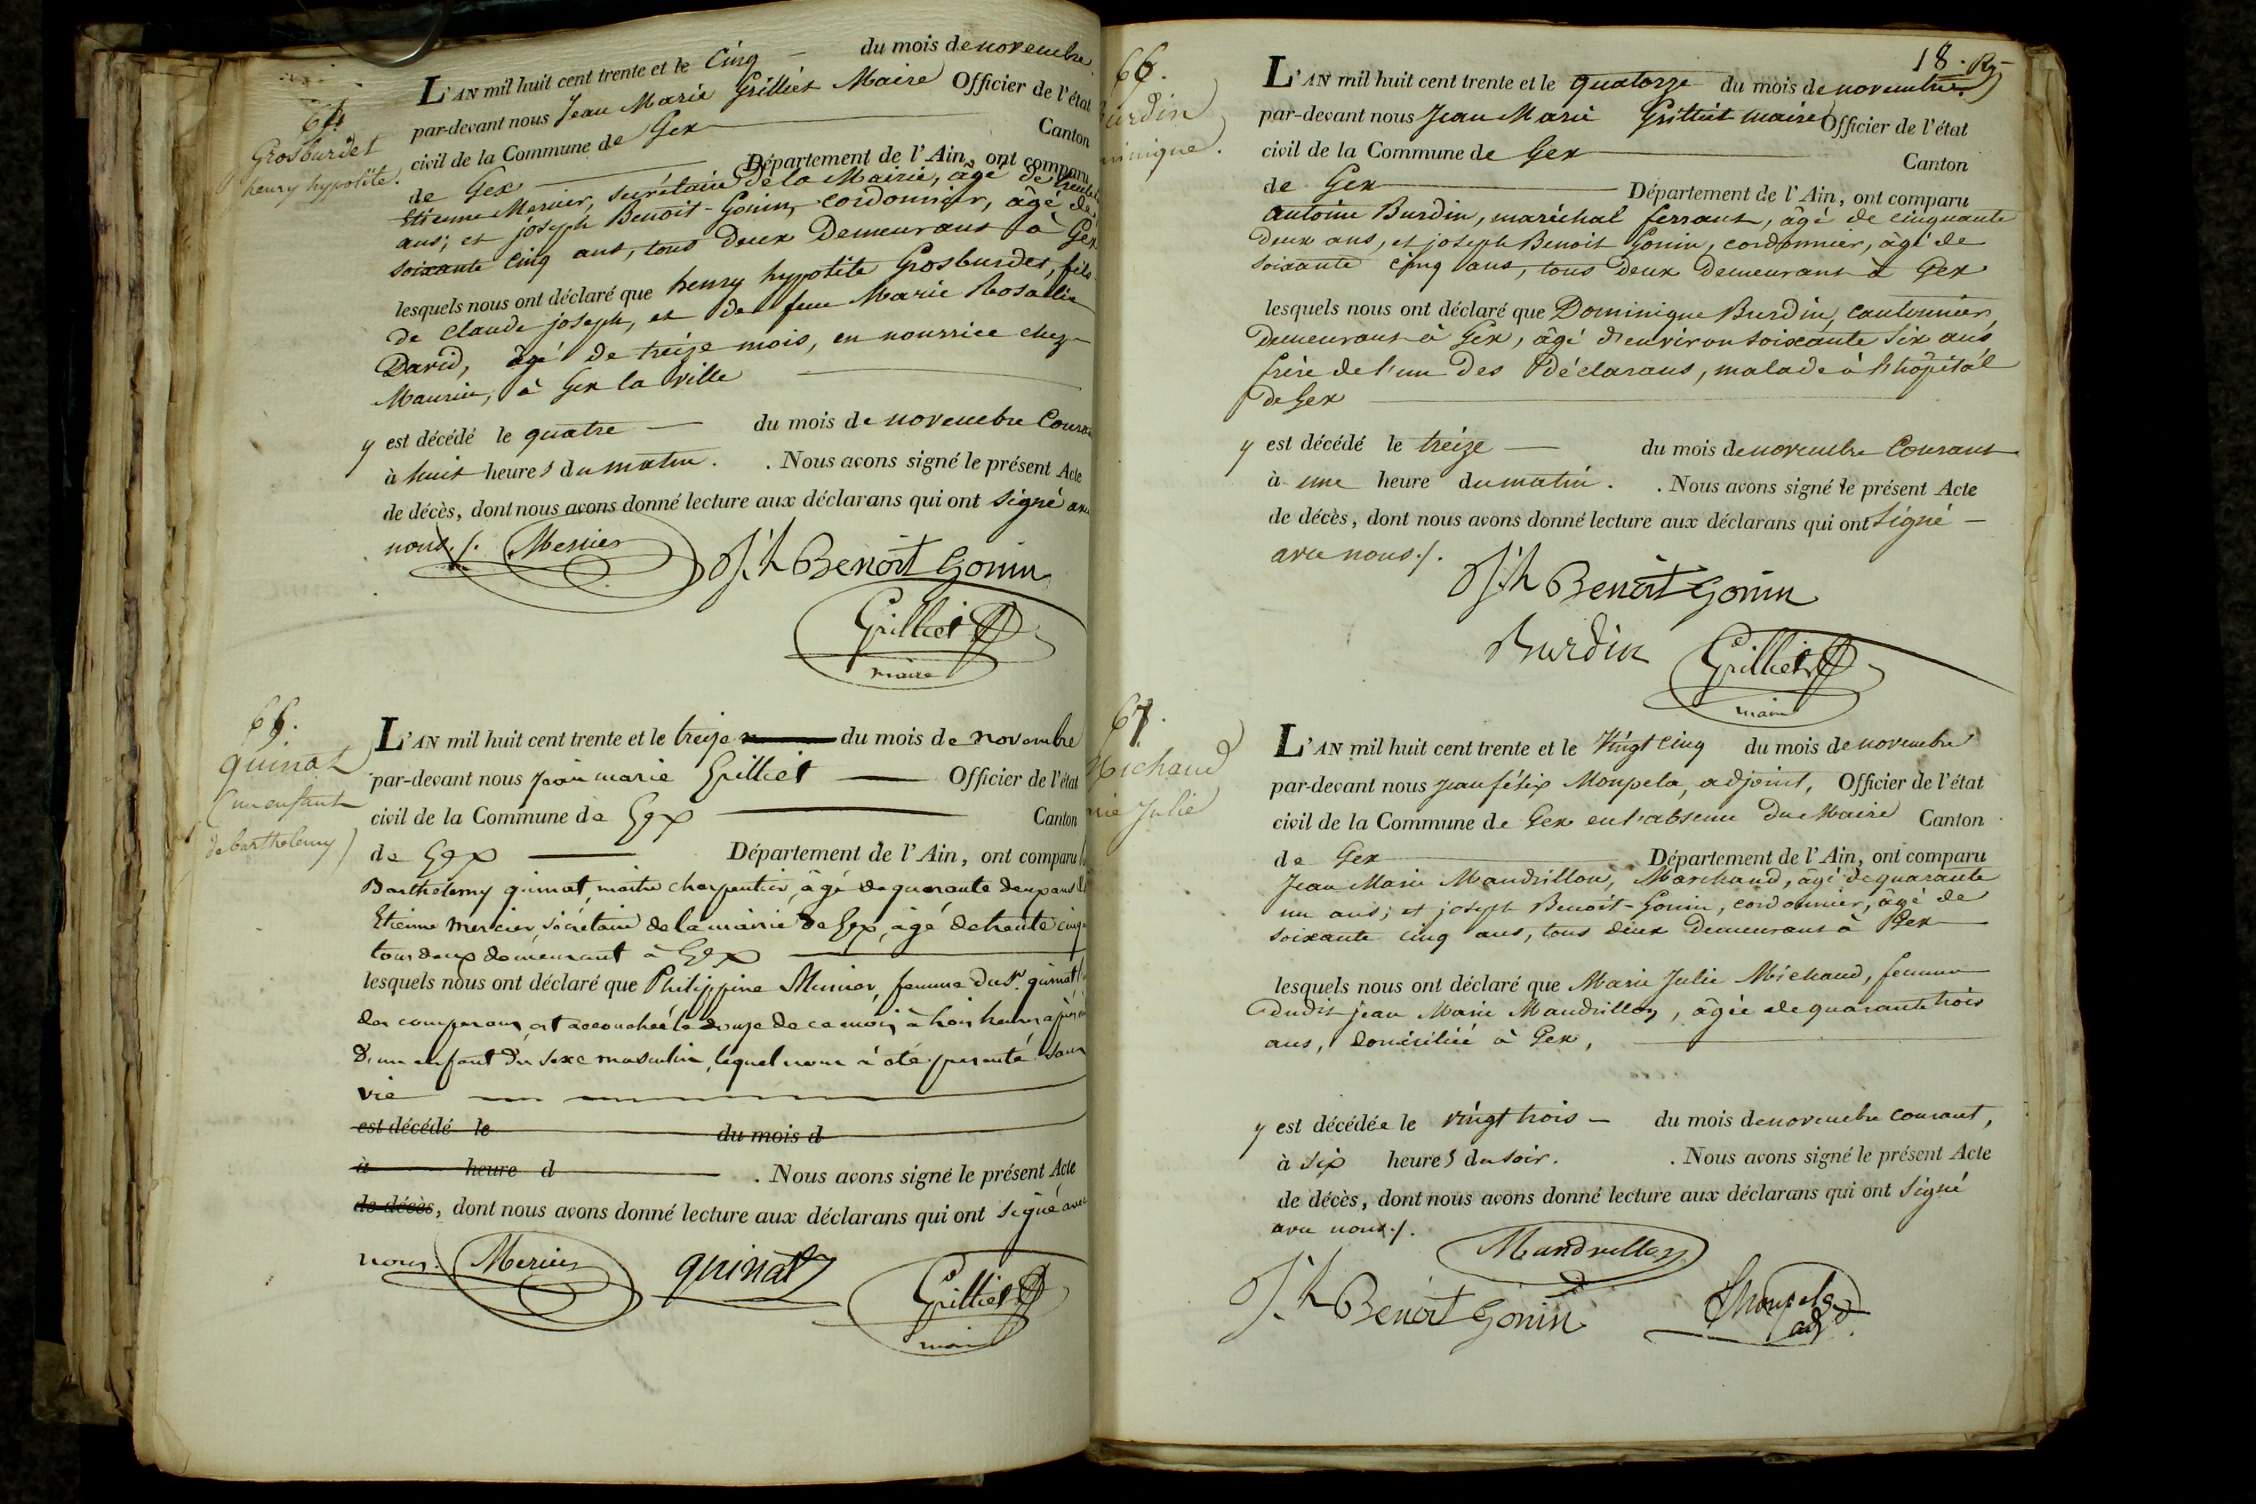 64.
Grosburdet
henry hypolite.
L'AN mil huit cent trente et le Cinq du mois de novembre
par-devant nous Jean Marie Grilliet Maire Officier de l'état
civil de la Commune de Gex Canton
de Gex Département de l'Ain, ont comparu
Etienne Mercier, secrétaire de la Mairie, âgé de trente
ans; et joseph Benoit-Gonin, cordonnier, âgé de
soixante cinq ans, tous deux Demeurant à Gex
lesquels nous ont déclaré que henry hypolite Grosburdet, fils
de claude joseph, et de feue Marie Rosalie
David, âgé de treize mois, en nourrice chez
Maurin, à Gex la ville
y est décédé le quatre du mois de novembre Courant
à huit heures du matin. . Nous avons signé le présent Acte
de décès, dont nous avons donné lecture aux déclarans qui ont signé avec
nous./. Mercier Jh Benoit Gonin
Grilliet
maire
65.
quinat
(un enfant
de barthelemy)
L'AN mil huit cent trente et le treize du mois de novembre
par-devant nous jean marie Grilliet Officier de l'état
civil de la Commune de Gex Canton
de Gex Département de l'Ain, ont comparu
Barthelemy quinat, maitre charpentier, âgé de quarante deux ans &
Etienne Mercier, sécrétaire de la mairie de Gex, âgé de trente cinq
tous deux demeurant à Gex
lesquels nous ont déclaré que Philippine Munier, femme du Sr. quinat
des comparans, est accouchée le douze de ce mois, à trois heures après
D'un enfant du sexe masculin, lequel nous a été présenté sans
vie
est décédé le du mois d
à heure d . Nous avons signé le présent Acte
de décès, dont nous avons donné lecture aux déclarans qui ont signé avec
nous. Mercier quinat Grilliet
maire
18. Rg
66.
Burdin
minique.
L'AN mil huit cent trente et le quatorze du mois de novembre
par-devant nous Jean Marie Grilliet maire Officier de l'état
civil de la Commune de Gex Canton
de Gex Département de l'Ain, ont comparu
antoine Burdin, maréchal ferrant, âgé de cinquante
deux ans, et joseph Benoit Gonin, cordonnier, âgé de
soixante cinq ans, tous deux demeurant à Gex
lesquels nous ont déclaré que Dominique Burdin, cantonnier,
Demeurant à Gex, âgé d'environ soixante six ans
frère de l'un des déclarans, malade à l'hôpital
de Gex
y est décédé le treize du mois de novembre Courant
à une heure du matin. . Nous avons signé le présent Acte
de décès, dont nous avons donné lecture aux déclarans qui ont Signé
avec nous./.
Jh Benoit Gonin
Burdin Grilliet
maire
67.
Michaud
rie Julie
L'AN mil huit cent trente et le Vingt cinq du mois de novembre
par-devant nous jean félix Monpela, adjoint, Officier de l'état
civil de la Commune de Gex en l'absence du Maire Canton
de Gex Département de l'Ain, ont comparu
Jean Marie Mandrillon, Marchand, âgé de quarante
un ans; et joseph Benoit-Gonin, cordonnier, âgé de
soixante cinq ans, tous deux Demeurant à Gex
lesquels nous ont déclaré que Marie Julie Michaud, femme
dudit jean Marie Mandrillon, âgée de quarante trois
ans, domiciliée à Gex,
y est décédée le vingt trois du mois de novembre courant,
à six heures du soir. . Nous avons signé le présent Acte
de décès, dont nous avons donné lecture aux déclarans qui ont signé
avec nous./.
Mandrillon
Jh Benoit Gonin Monpela
adj